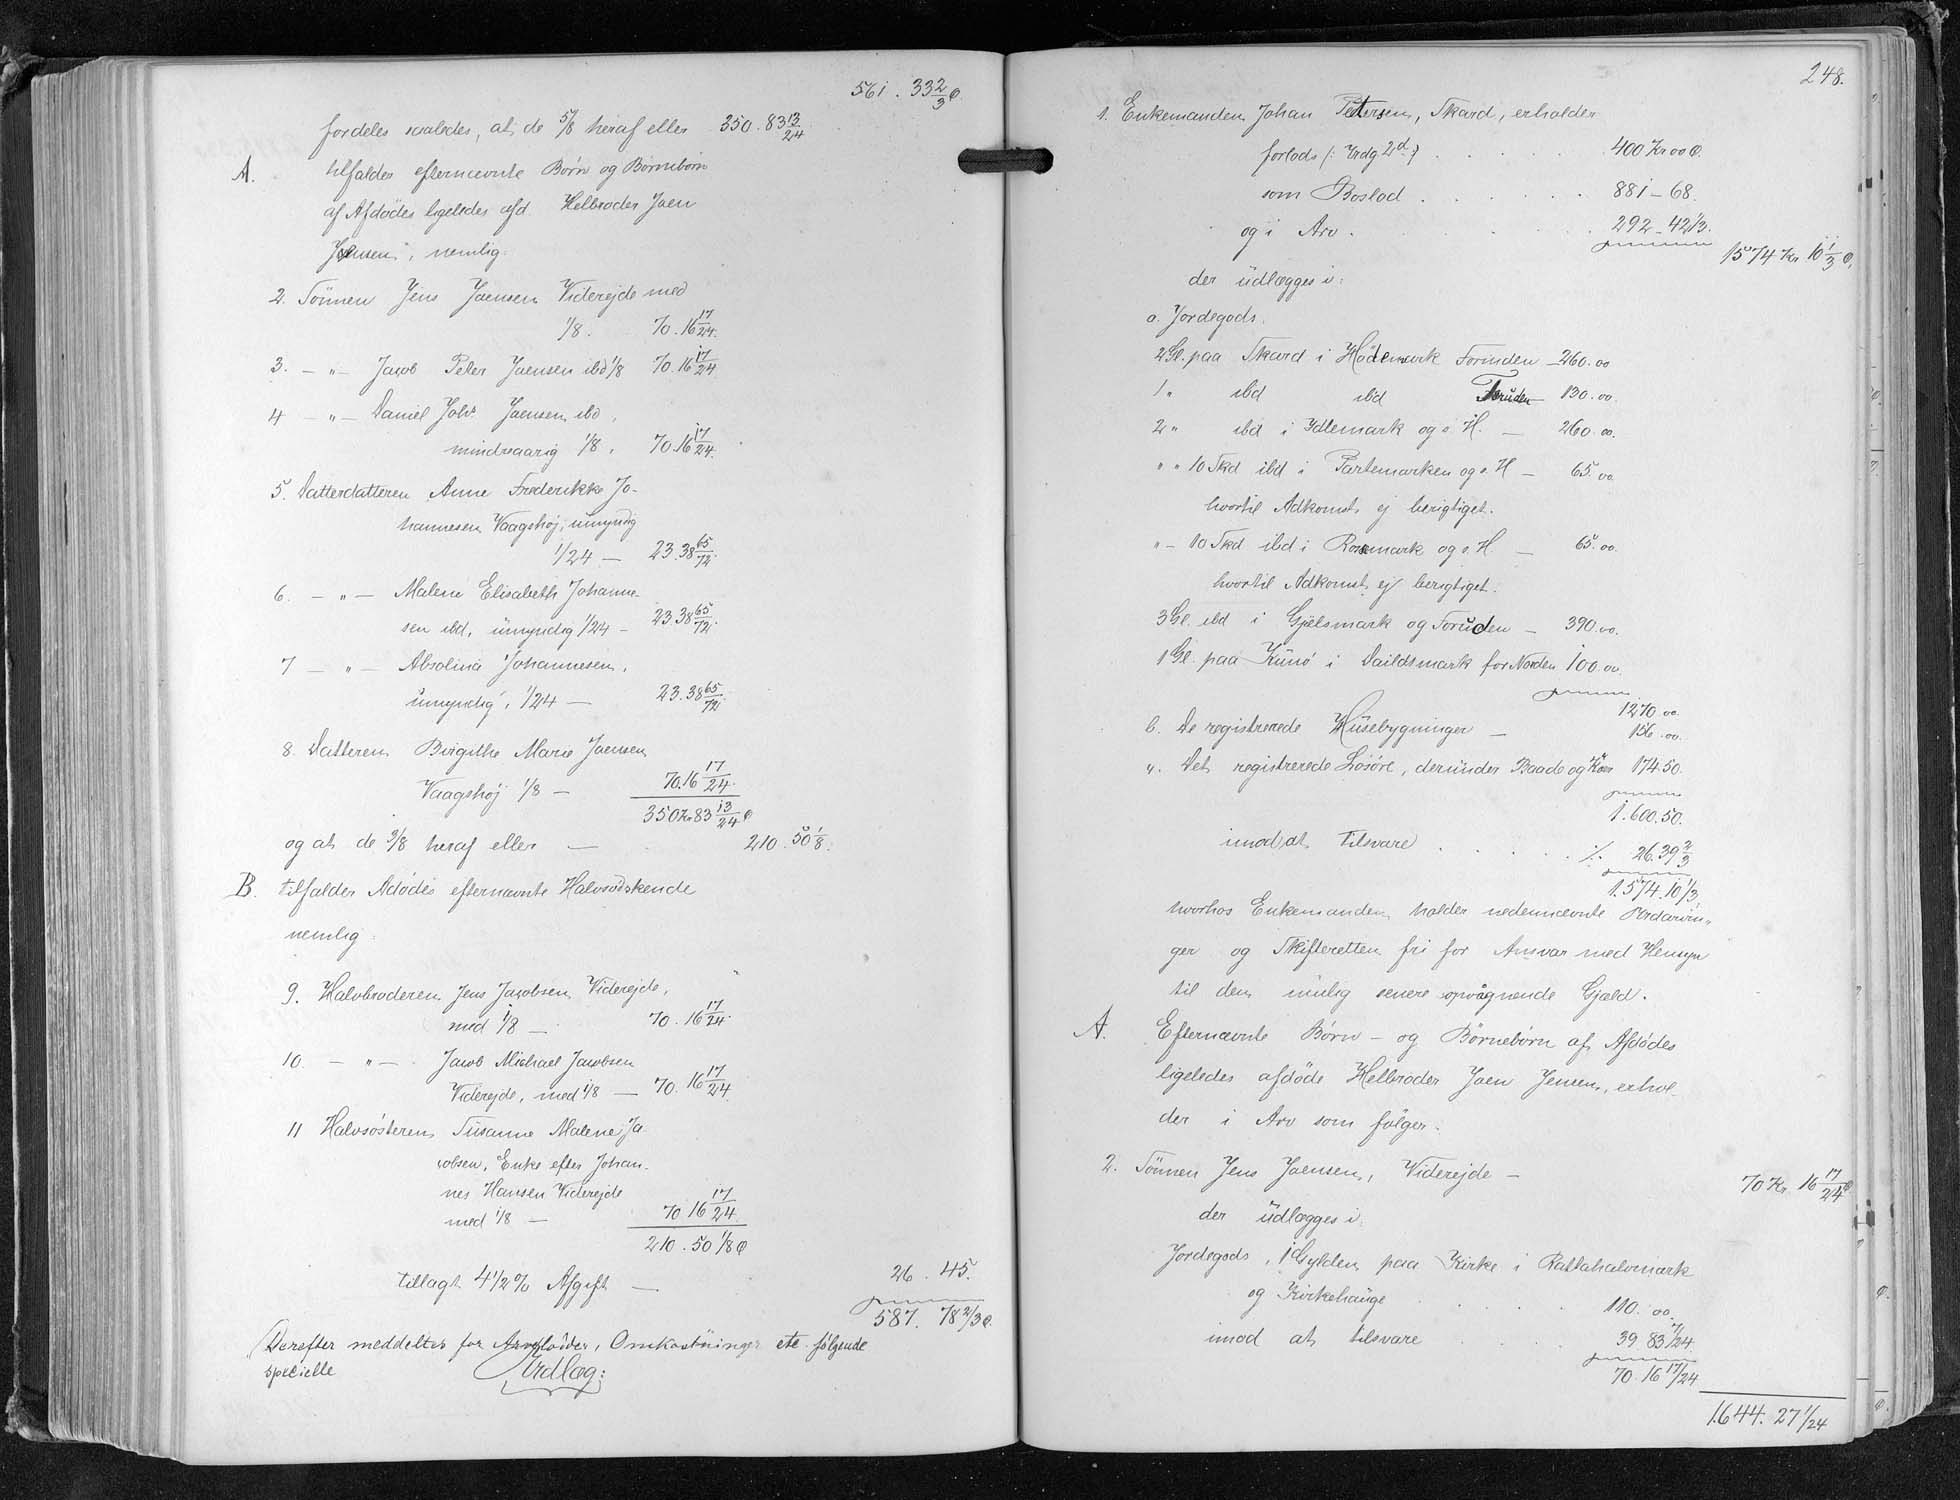 561. 33 2/3 Ø.
fordeles saaledes, at de 5/8 heraf eller 350.83 13/24
A. tilfalder efternævnte Børn og Børnebørn
af Afdødes ligeledes afd. Helbroder Joen
Jensen, nemlig:
2. Sönnen Jens Joensen Viderejde med
1/8. 70.16 17/24.
3. — „ — Jacob Peter Joensen ibd 1/8 70.16 17/24
4 — „ — Daniel Johs Joensen ibd,
mindreaarig 1/8, 70.16 17/24.
5. Datterdatteren Anne Frederikke Jo-
hannesen Vaagshøj, umyndig
1/24 — 23.38 65/72.
6. — „ — Malene Elisabeth Johanne-
sen ibd, umyndig 1/24 — 23.38 65/72.
7 — „ — Absolina Johannesen,
umyndig, 1/24 — 23.38 65/72.
8. Datteren Birgithe Marie Joensen
Vaagshøj 1/8 — 70.16 17/24.
350 Kr 83 13/24 Ø
og at de 3/8 heraf eller — 210.50 1/8.
B. tilfalder Adødes efternævnte Halvsødskende
nemlig:
9. Halvbroderen Jens Jacobsen Viderejde,
med 1/8 — 70.16 17/24.
10. — „ — . Jacob Michael Jacobsen
Viderejde, med 1/8 — 70.16 17/24.
11 Halvsösteren Susanne Malene Ja-
cobsen, Enke efter Johan-
nes Hansen Viderejde
med 1/8 — 70.16 17/24.
210.50 1/8 Ø
tillagt 4 1/2 % Afgift — 26.45.
587. 78 2/3 Ø.
Derefter meddeltes for Arvelodder, Omkostninger etc følgende
specielle Udlæg:
248.
1. Enkemanden Johan Petersen, Skard, erholder
forlods (: Udg 2d :) . . . . 400 Kr 00 Ø.
som Boslod . . . . . 881 — 68.
og i Arv . . . . . 292 — 42 1/3.
1574 Kr. 10 1/3 Ø.
der udlægges i:
a. Jordegods.
2 Gl. paa Skard i Hödemark Foruden — 260.00
1 „ ibd ibd Foruden — 130.00.
2 „ ibd i Ydlemark og s. H. — 260.00.
„ „ 10 Skd ibd i Partemarken og s. H — 65.00
hvortil Adkomst ej berigtiget.
„ — 10 Skd ibd i Rossmark og s. H. — 65.00.
hvortil Adkomst ej berigtiget.
3 Gl. ibd i Gjelsmark og Foruden — 390.00.
1 Gl. paa Kunö i Daildsmark for Norden 100.00.
1270.00.
b. De registrerede Husebygninger — 156.00.
„. Det registrerede Løsøre, derunder Baade og Köer 174.50.
1.600.50.
imod at tilsvare . . . . . ./. 26.39 2/3
1.574.10 1/3
hvorhos Enkemanden holder nedennævnte Udarvin-
ger og Skifteretten fri for Ansvar med Hensyn
til den mulig senere opvågnende Gjæld.
A. Efternævnte Børn — og Börnebørn af Afdødes
ligeledes afdöde Helbroder Joen Jensen, erhol-
der i Arv som følger.
2. Sönnen Jens Joensen, Viderejde — 70 Kr. 16 17/24 Ø
der udlægges i:
Jordegods, 1 Gylden paa Kirke i Rattahalvmark
og Kirkehauge . . . . 110.00.
imod at tilsvare . . 39.83 7/24.
70.16 17/24
1.644. 27 1/24